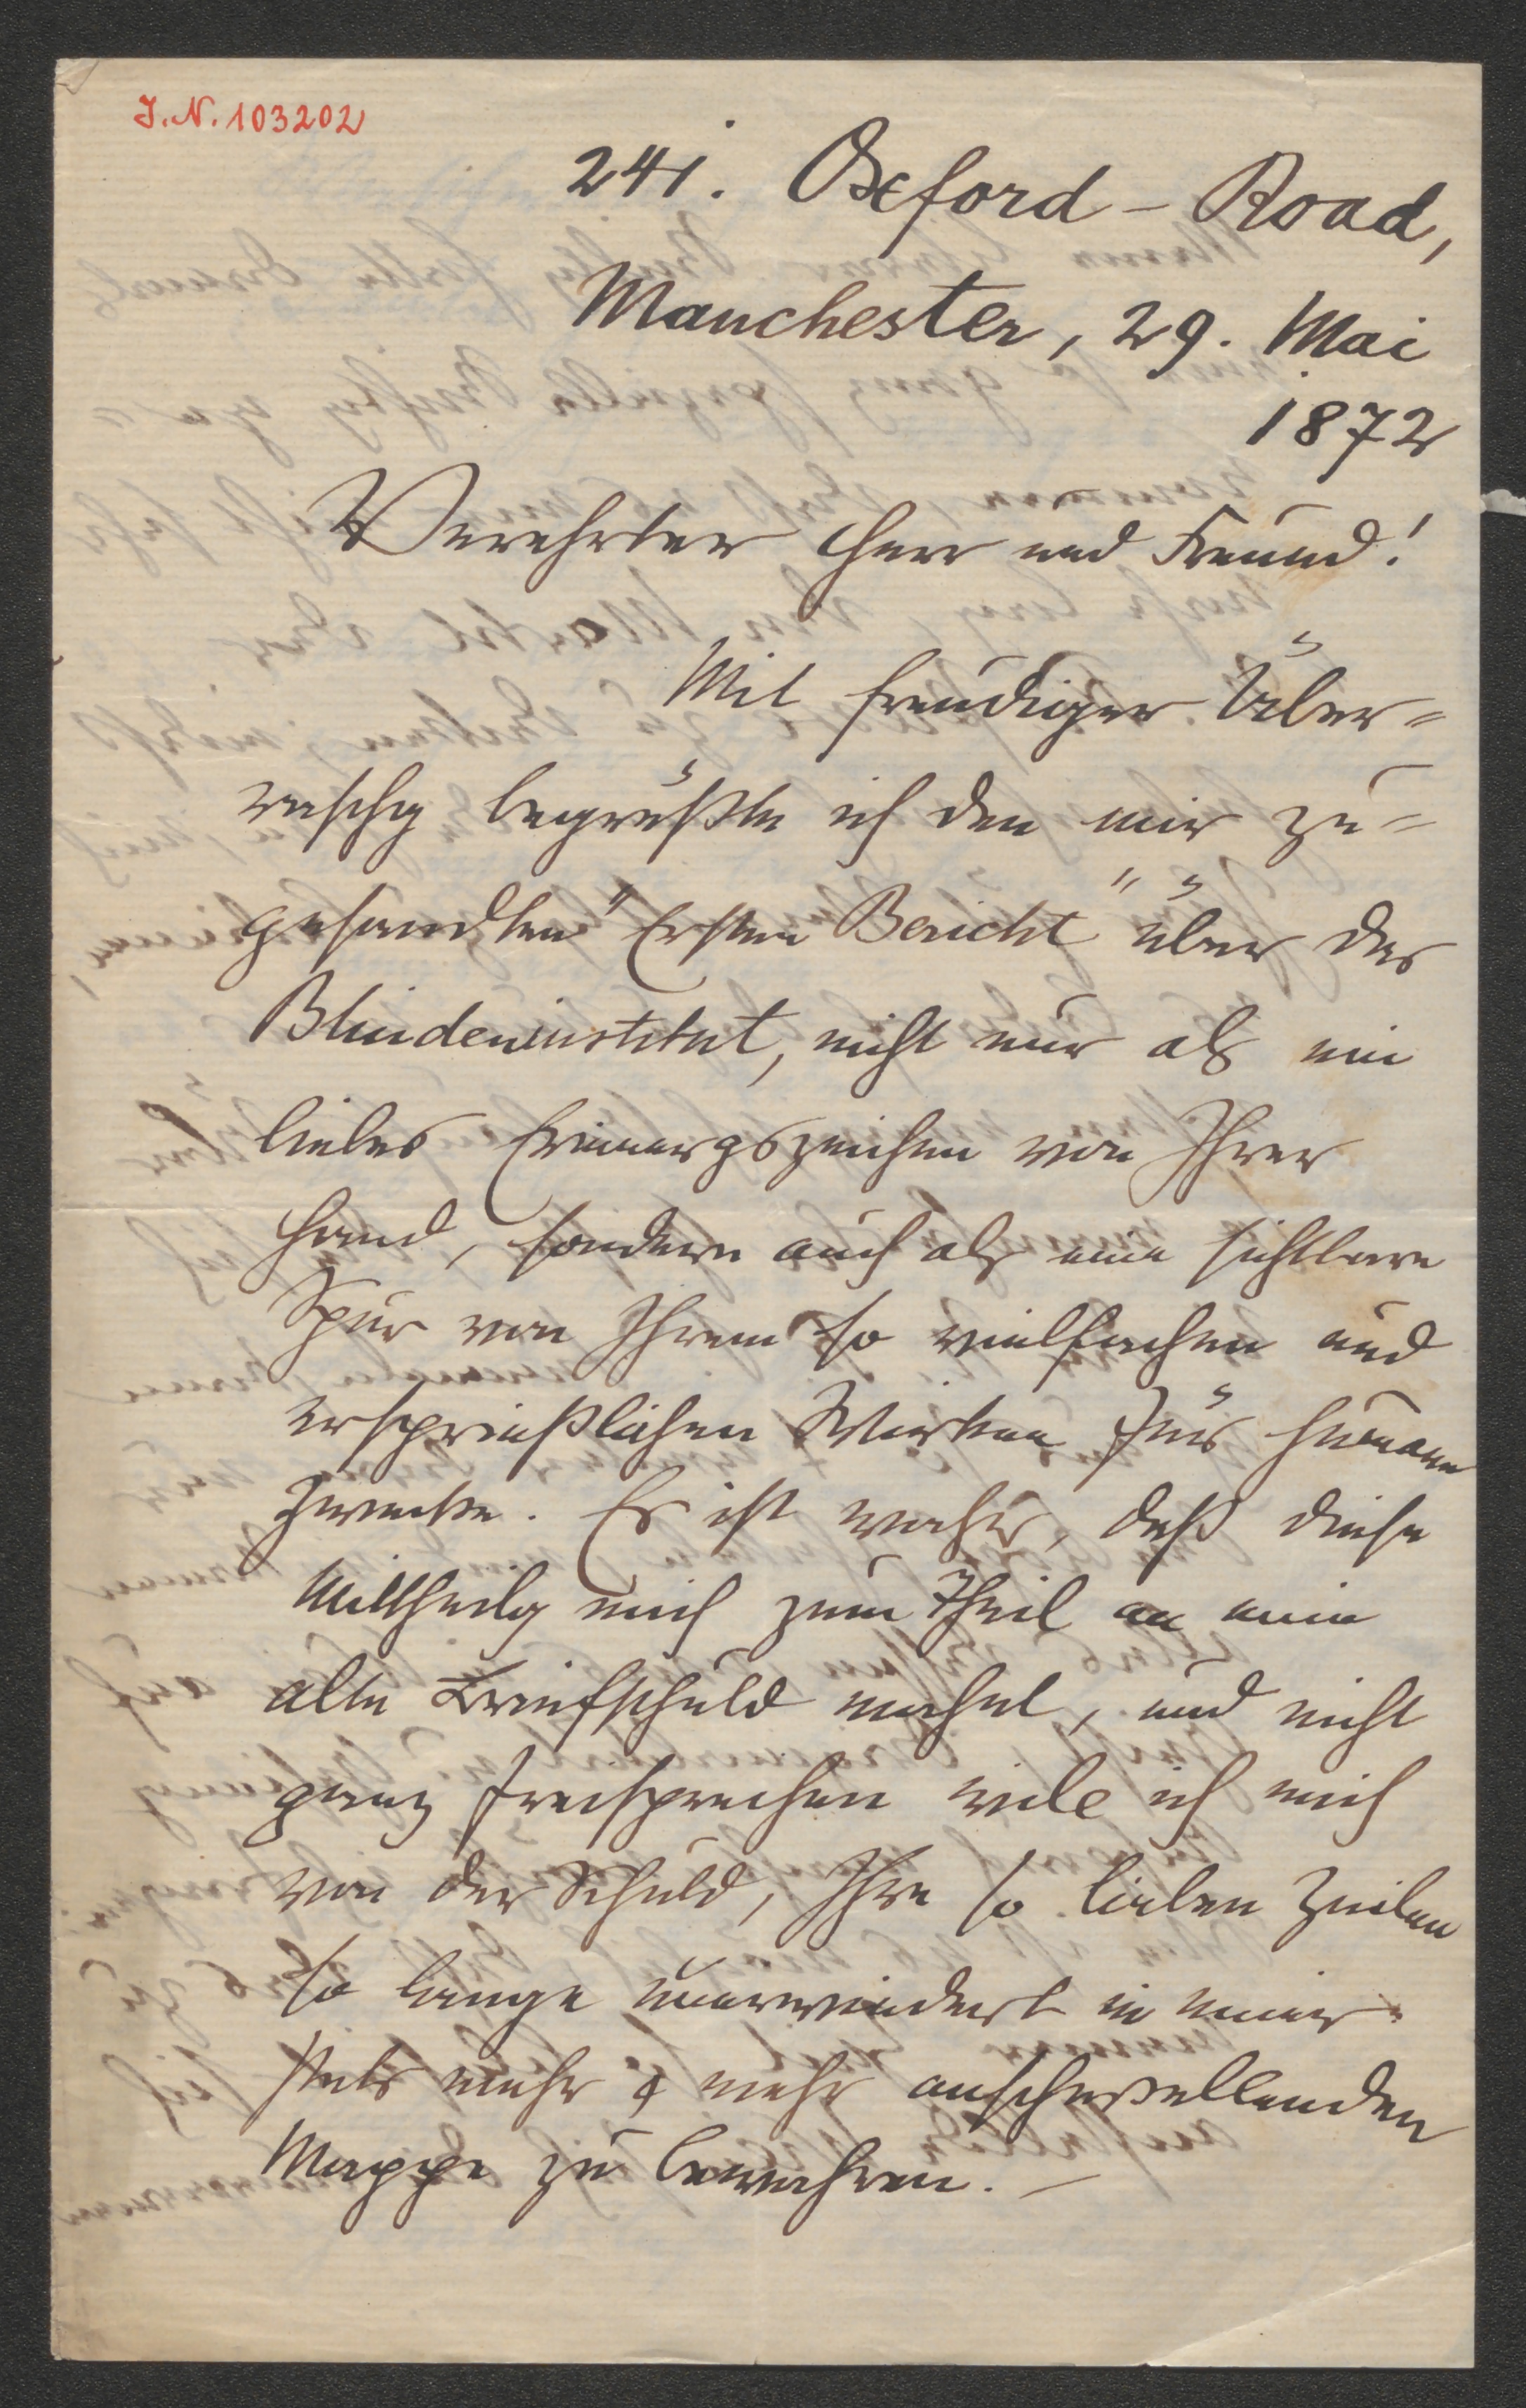 J.N. 103202
241. Oxford-Road,
Manchester, 29. Mai
1872
Verehrter Herr und Freund!
Mit freudiger Über=
raschg begrüßte ich den mir zu=
gesandten "Ersten Bericht" über das
Blindeninstitut, nicht nur als ein
liebes Erinnergszeichen von Ihrer
Hand, sondern auch als eine sichtbare
Spur von Ihrem so vielfachen und
ersprießlichen Wirken für humane
Zwecke. Es ist wahr, daß diese
Mittheilg mich zum Theil an eine
alte Briefschuld mahnt, und nicht
ganz freisprechen will ich mich
von der Schuld, Ihre so lieben Zeilen
so lange unerwiedert in meiner
stets mehr & mehr anschwellenden
Mappe zu bewahren. —